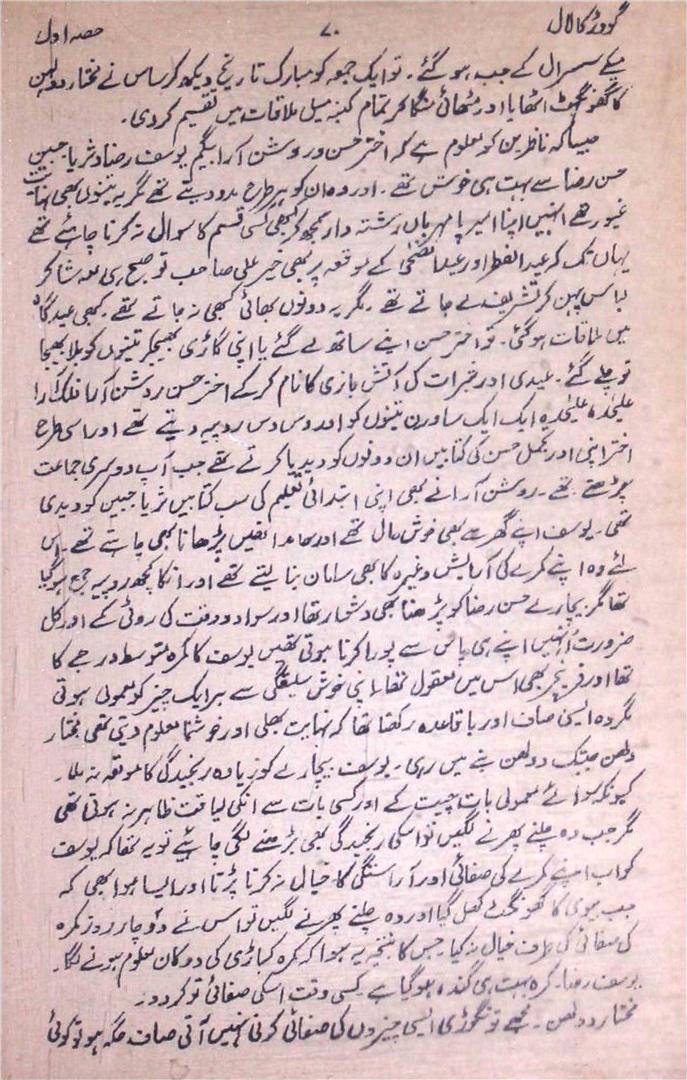 گودڑ کا لال ۷۰ حصہ اول
میکے سسرال کے جب ہو گئے۔ تو ایک جمعہ کو مبارک تاریخ دیکھ کر ساس نے مختار دولہن
کا گھونگھٹ اٹھایا اور مٹھائی منگا کر تمام کنبہ میل ملاقات میں تقسیم کر دی۔
جیسا کہ ناظرین کو معلوم ہے کہ اختر حسن و روشن آرا بیگم یوسف رضا و ثریا جبین
حسن رضا سے بہت ہی خوش تھے۔ اور وہ ان کو ہر طرح مدد دیتے تھے مگر یہ تینوں بھی نہایت
غیور تھے انہیں اپنا امیر یا مہربان رشتہ دار سمجھ کر کبھی کسی قسم کا سوال نہ کرنا چاہتے تھے
یہاں تک کہ عید الفطر اور عید الضحیٰ کے موقعہ پر بھی حیدر علی صاحب تو صبح ہی عمدہ شاکر
لباس پہن کر تشریف لے جاتے تھے۔ مگر یہ دونوں بھائی کبھی نہ جاتے تھے۔ کبھی عیدگاہ
میں ملاقات ہو گئی۔ تو اختر حسن اپنے ساتھ لے گئے یا اپنی گاڑی بھیجکر تینوں کو بلا بھیجا
تو چلے گئے۔ عیدی اور شبرات کی آتش بازی کا نام کر کے اختر حسن روشن آرا فلک آرا
علیحدہ علیحدہ ایک ایک ساورن تینوں کو اور دس دس روپیہ دیتے تھے اور اسی طرح
اختر اپنی اور مکمل حسن کی کتابیں ان دونوں کو دیدیا کرتے تھے جب آپ دوسری جماعت
چڑھتے تھے۔ روشن آرا نے بھی اپنی ابتدائی تعلیم کی سب کتابیں ثریا جبین کو دیدی
تھی۔ یوسف اپنے گھر سے بھی خوش حال تھے اور حامد انھیں پڑھانا بھی چاہتے تھے۔ اس
لئے وہ اپنے کمرے کی آرایش وغیرہ کا بھی سامان بنا لیتے تھے اور انکا کچھ روپیہ جمع ہو گیا
تھا مگر بیچارے حسن رضا کو پڑھنا بھی دشوار تھا اور سوا دو وقت کی روٹی کے اور کل
ضرورت انہیں اپنے ہی پاس سے پورا کرنا ہوتی تھیں یوسف کا کمرہ متوسط درجے کا
تھا اور فرنیچر بھی اس میں معقول تھا اپنی خوش سلیقگی سے ہر ایک چیز کو معمولی ہوتی
مگر وہ ایسی صاف اور باقاعدہ رکھتا تھا کہ نہایت بھلی اور خوشنما معلوم دیتی تھی مختار
دلھن جبتک دولھن بنے میں رہی۔ یوسف بیچارے کو زیادہ رنجیدگی کا موقعہ نہ ملا۔
کیونکہ سوائے معمولی بات چیت کے اور کسی بات سے انکی لیاقت ظاہر نہ ہوتی تھی
مگر جب وہ چلنے پھرنے لگیں تو اسکی رنجیدگی بھی بڑھنے لگی چاہیئے تو یہ تھا کہ یوسف
کو اب اپنے کمرے کی صفائی اور آراستگی کا خیال نہ کرنا پڑتا اور ایسا ہوا بھی کہ
جب بیوی کا گھونگھٹ کھل گیا اور وہ چلنے پھرنے لگیں تو اس نے دو چار روز کمرہ
کی صفائی کی طرف خیال نہ کیا۔ جس کا نتیجہ یہ ہوا کہ کمرہ کباڑی کی دوکان معلوم ہونے لگا۔
یوسف رضا۔ کمرہ بہت ہی گندہ ہو گیا ہے۔ کسی وقت اسکی صفائی تو کر دو۔
مختار دولھن۔ مجھے تو نگوڑی ایسی چیزوں کی صفائی کرنی نہیں آتی صاف جگہ ہو تو کوئی